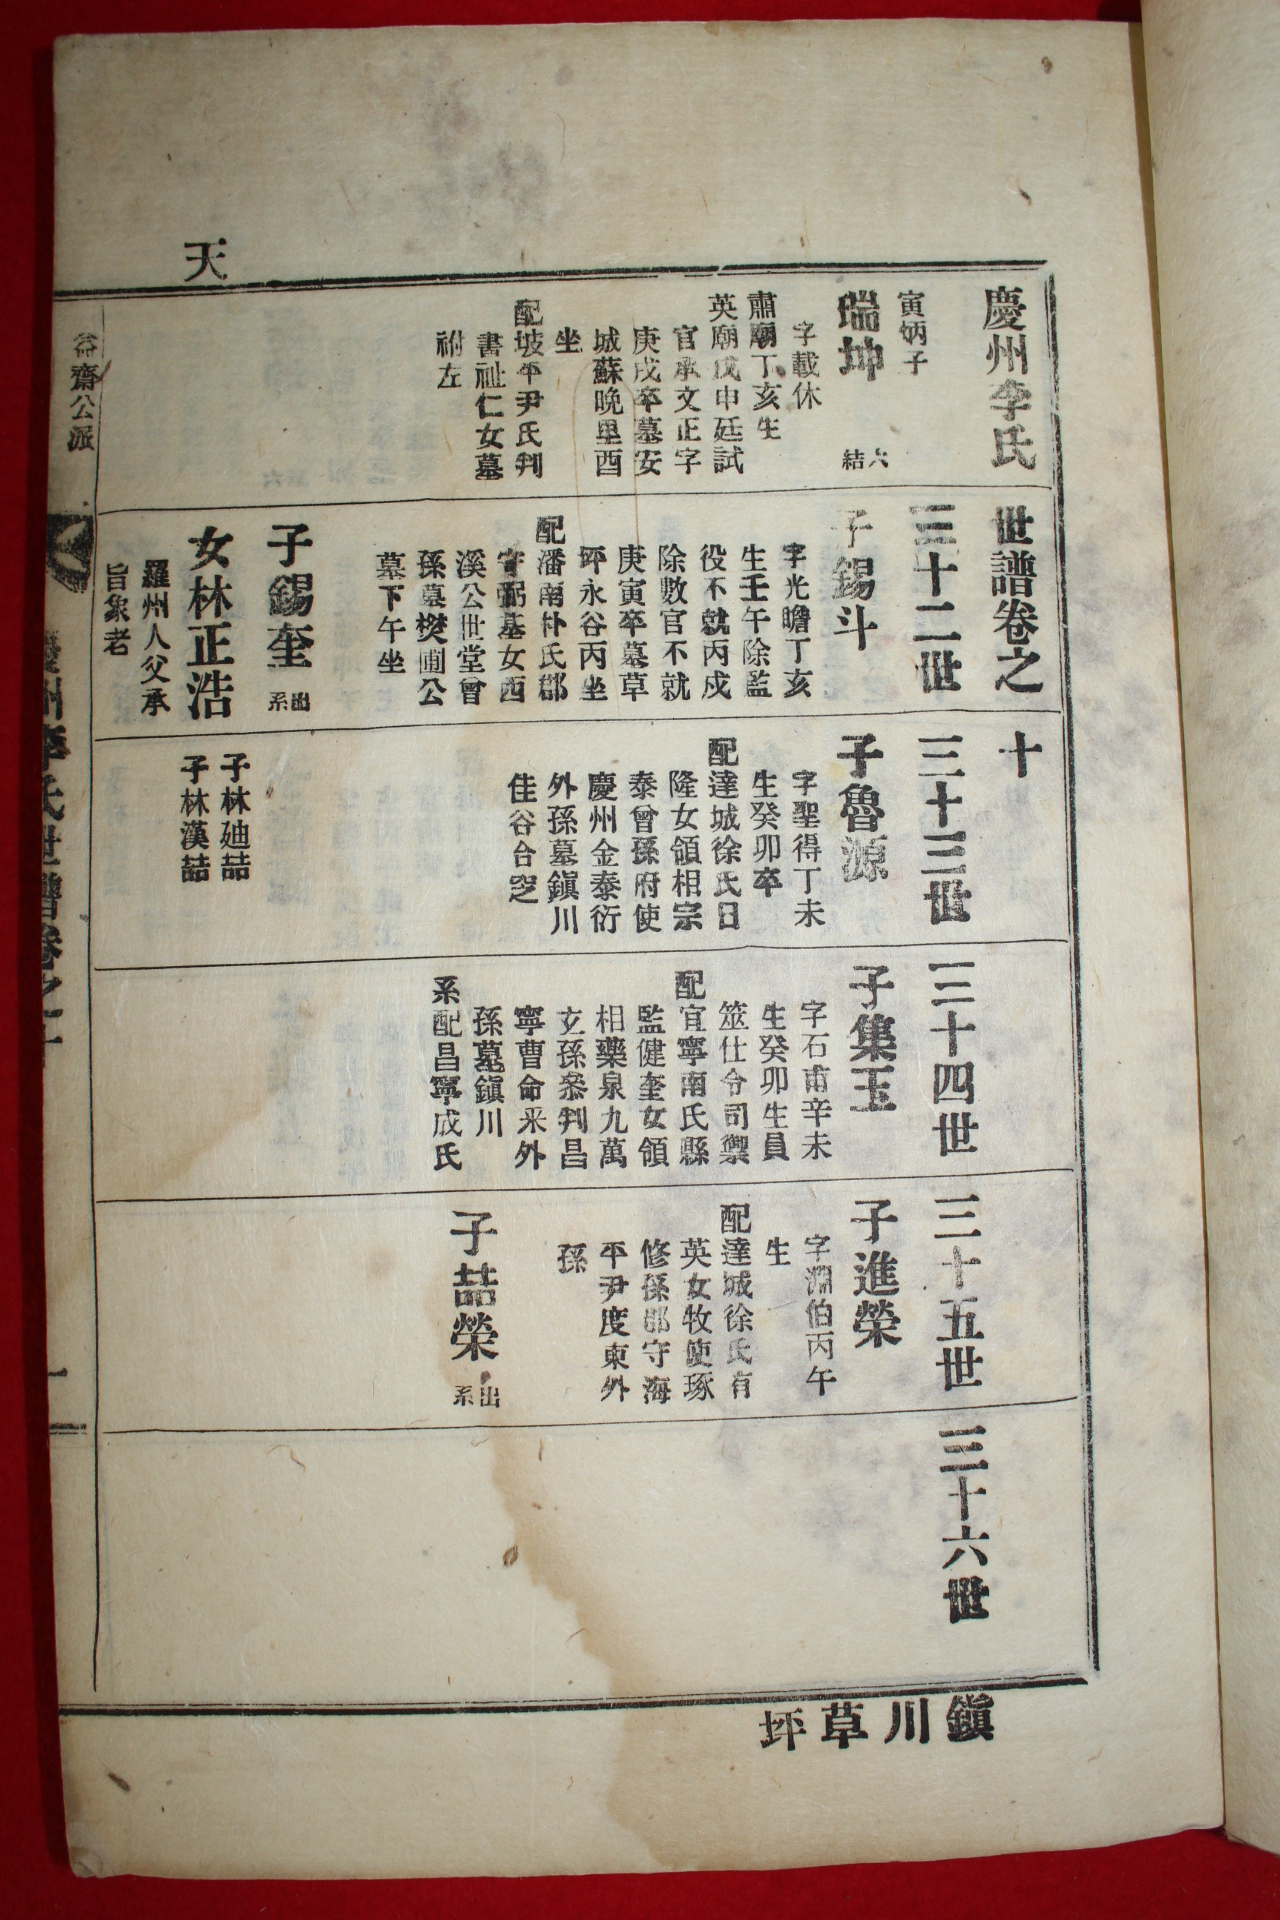 天
慶州李氏世譜卷之十
寅炳子
瑞坤
六結
字載休
肅廟丁亥生
英廟戊申廷試
官承文正字
庚戌卒墓安
城蘇晩里酉
坐
配坡平尹氏判
書祉仁女墓
祔左
三十二世
子錫斗
字光瞻丁亥
生壬午除監
役不就丙戍
除數官不就
庚寅卒墓草
坪永谷丙坐
配潘南朴氏郡
守弼基女西
溪公世堂曾
孫墓樊圃公
墓下午坐
子錫奎
出系
女林正浩
羅州人父承
旨象老
三十三世
子魯源
字聖得丁未
生癸卯卒
配達城徐氏日
隆女領相宗
泰曾孫府使
慶州金泰衍
外孫墓鎭川
佳谷合窆
子林廸喆
子林漢喆
三十四世
子集玉
字石甫辛未
生癸卯生員
筮仕令司禦
配宜寧南氏縣
監健奎女領
相藥泉九萬
玄孫叅判昌
寧曹命采外
孫墓鎭川
系配昌寧成氏
三十五世
子進榮
字淵伯丙午
生
配達城徐氏有
英女牧使琢
修孫郡守海
平尹度東外
孫
子喆榮
出系
三十六世
益齋公派
慶州李氏世譜卷之十
一
鎭川草坪